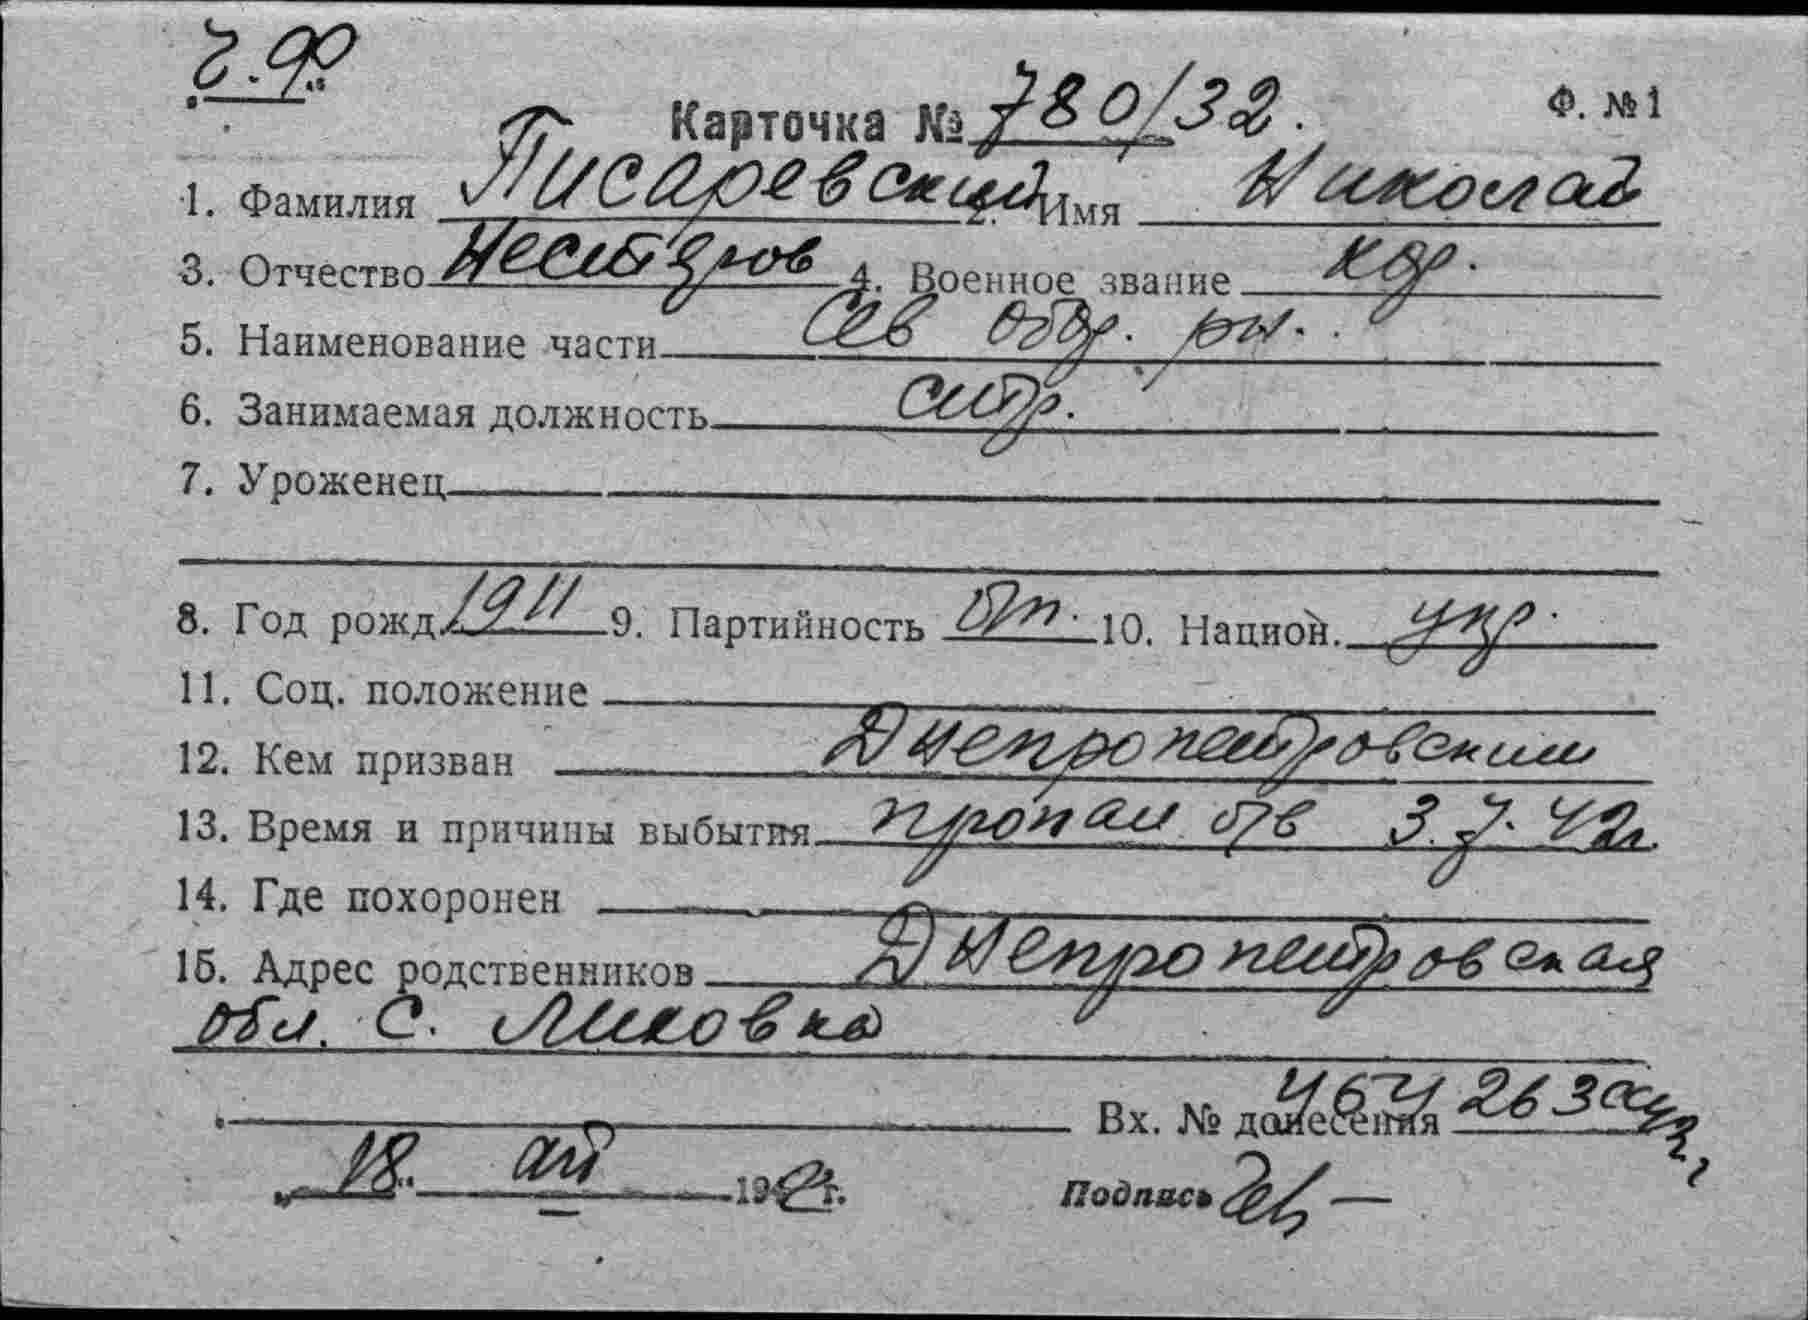 Ч.Ф.
Карточка № 780/32. Ф. №1
1. Фамилия Писаревский 2. Имя Николай
3. Отчество Нестеров 4. Военное звание кр.
5. Наименование части Сев обор. рн.
6. Занимаемая должность стр.
7. Уроженец
8. Год рожд. 1911 9. Партийность б/п. 10. Национ. укр.
11. Соц. положение
12. Кем призван Днепропетровским
13. Время и причины выбытия пропал б/в 3.7.42г.
14. Где похоронен
15. Адрес родственников Днепропетровская
обл. С. Лиховка
Вх. № донесения
18. 194 г. Подпись